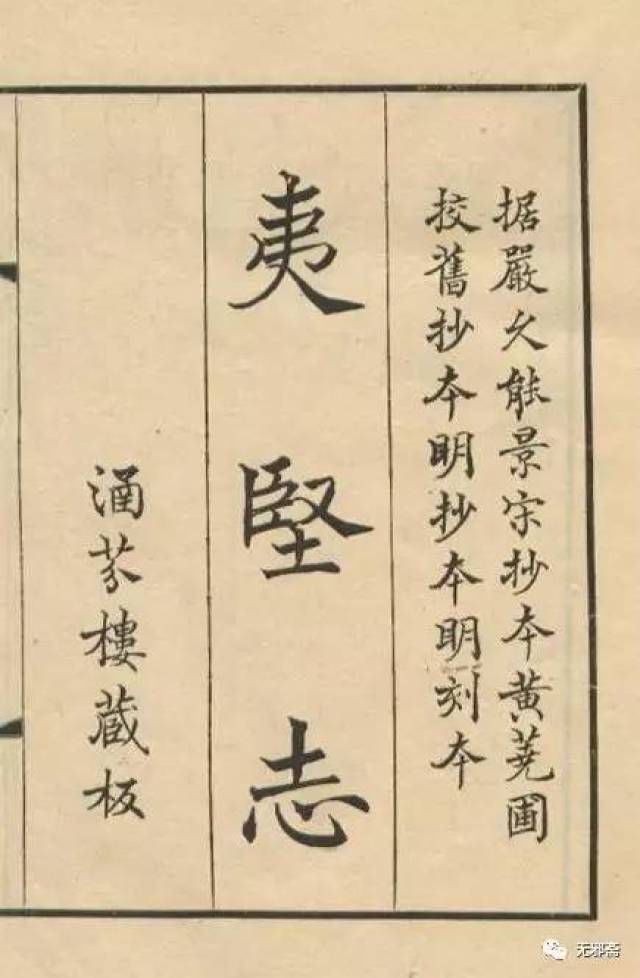 据嚴久能景宋抄本黄荛圃
挍舊抄本明抄本明刻本
夷堅志
涵芬樓藏板
无邪斋